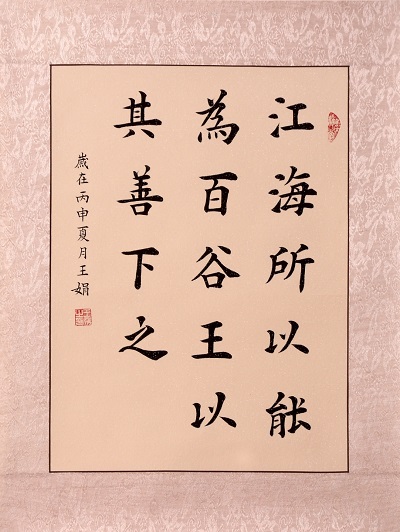 江海所以能
為百谷王以
其善下之
歲在丙申夏月王娟